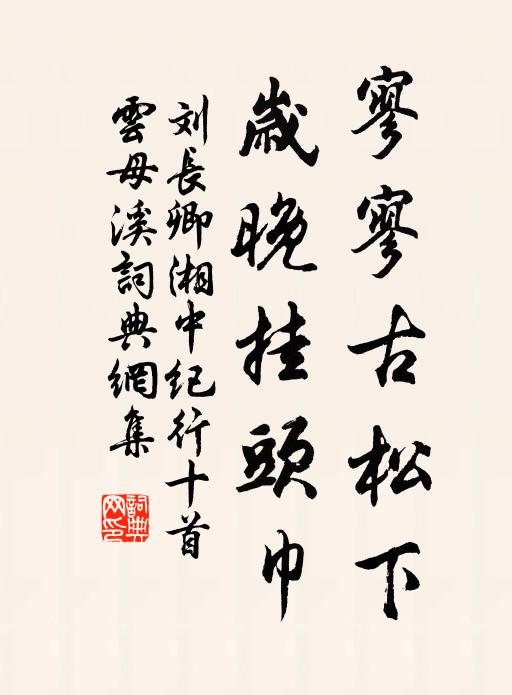 寥寥古松下
歲晚挂頭巾
刘長卿湘中纪行十首
雲母溪詞典網集
詞典
网印